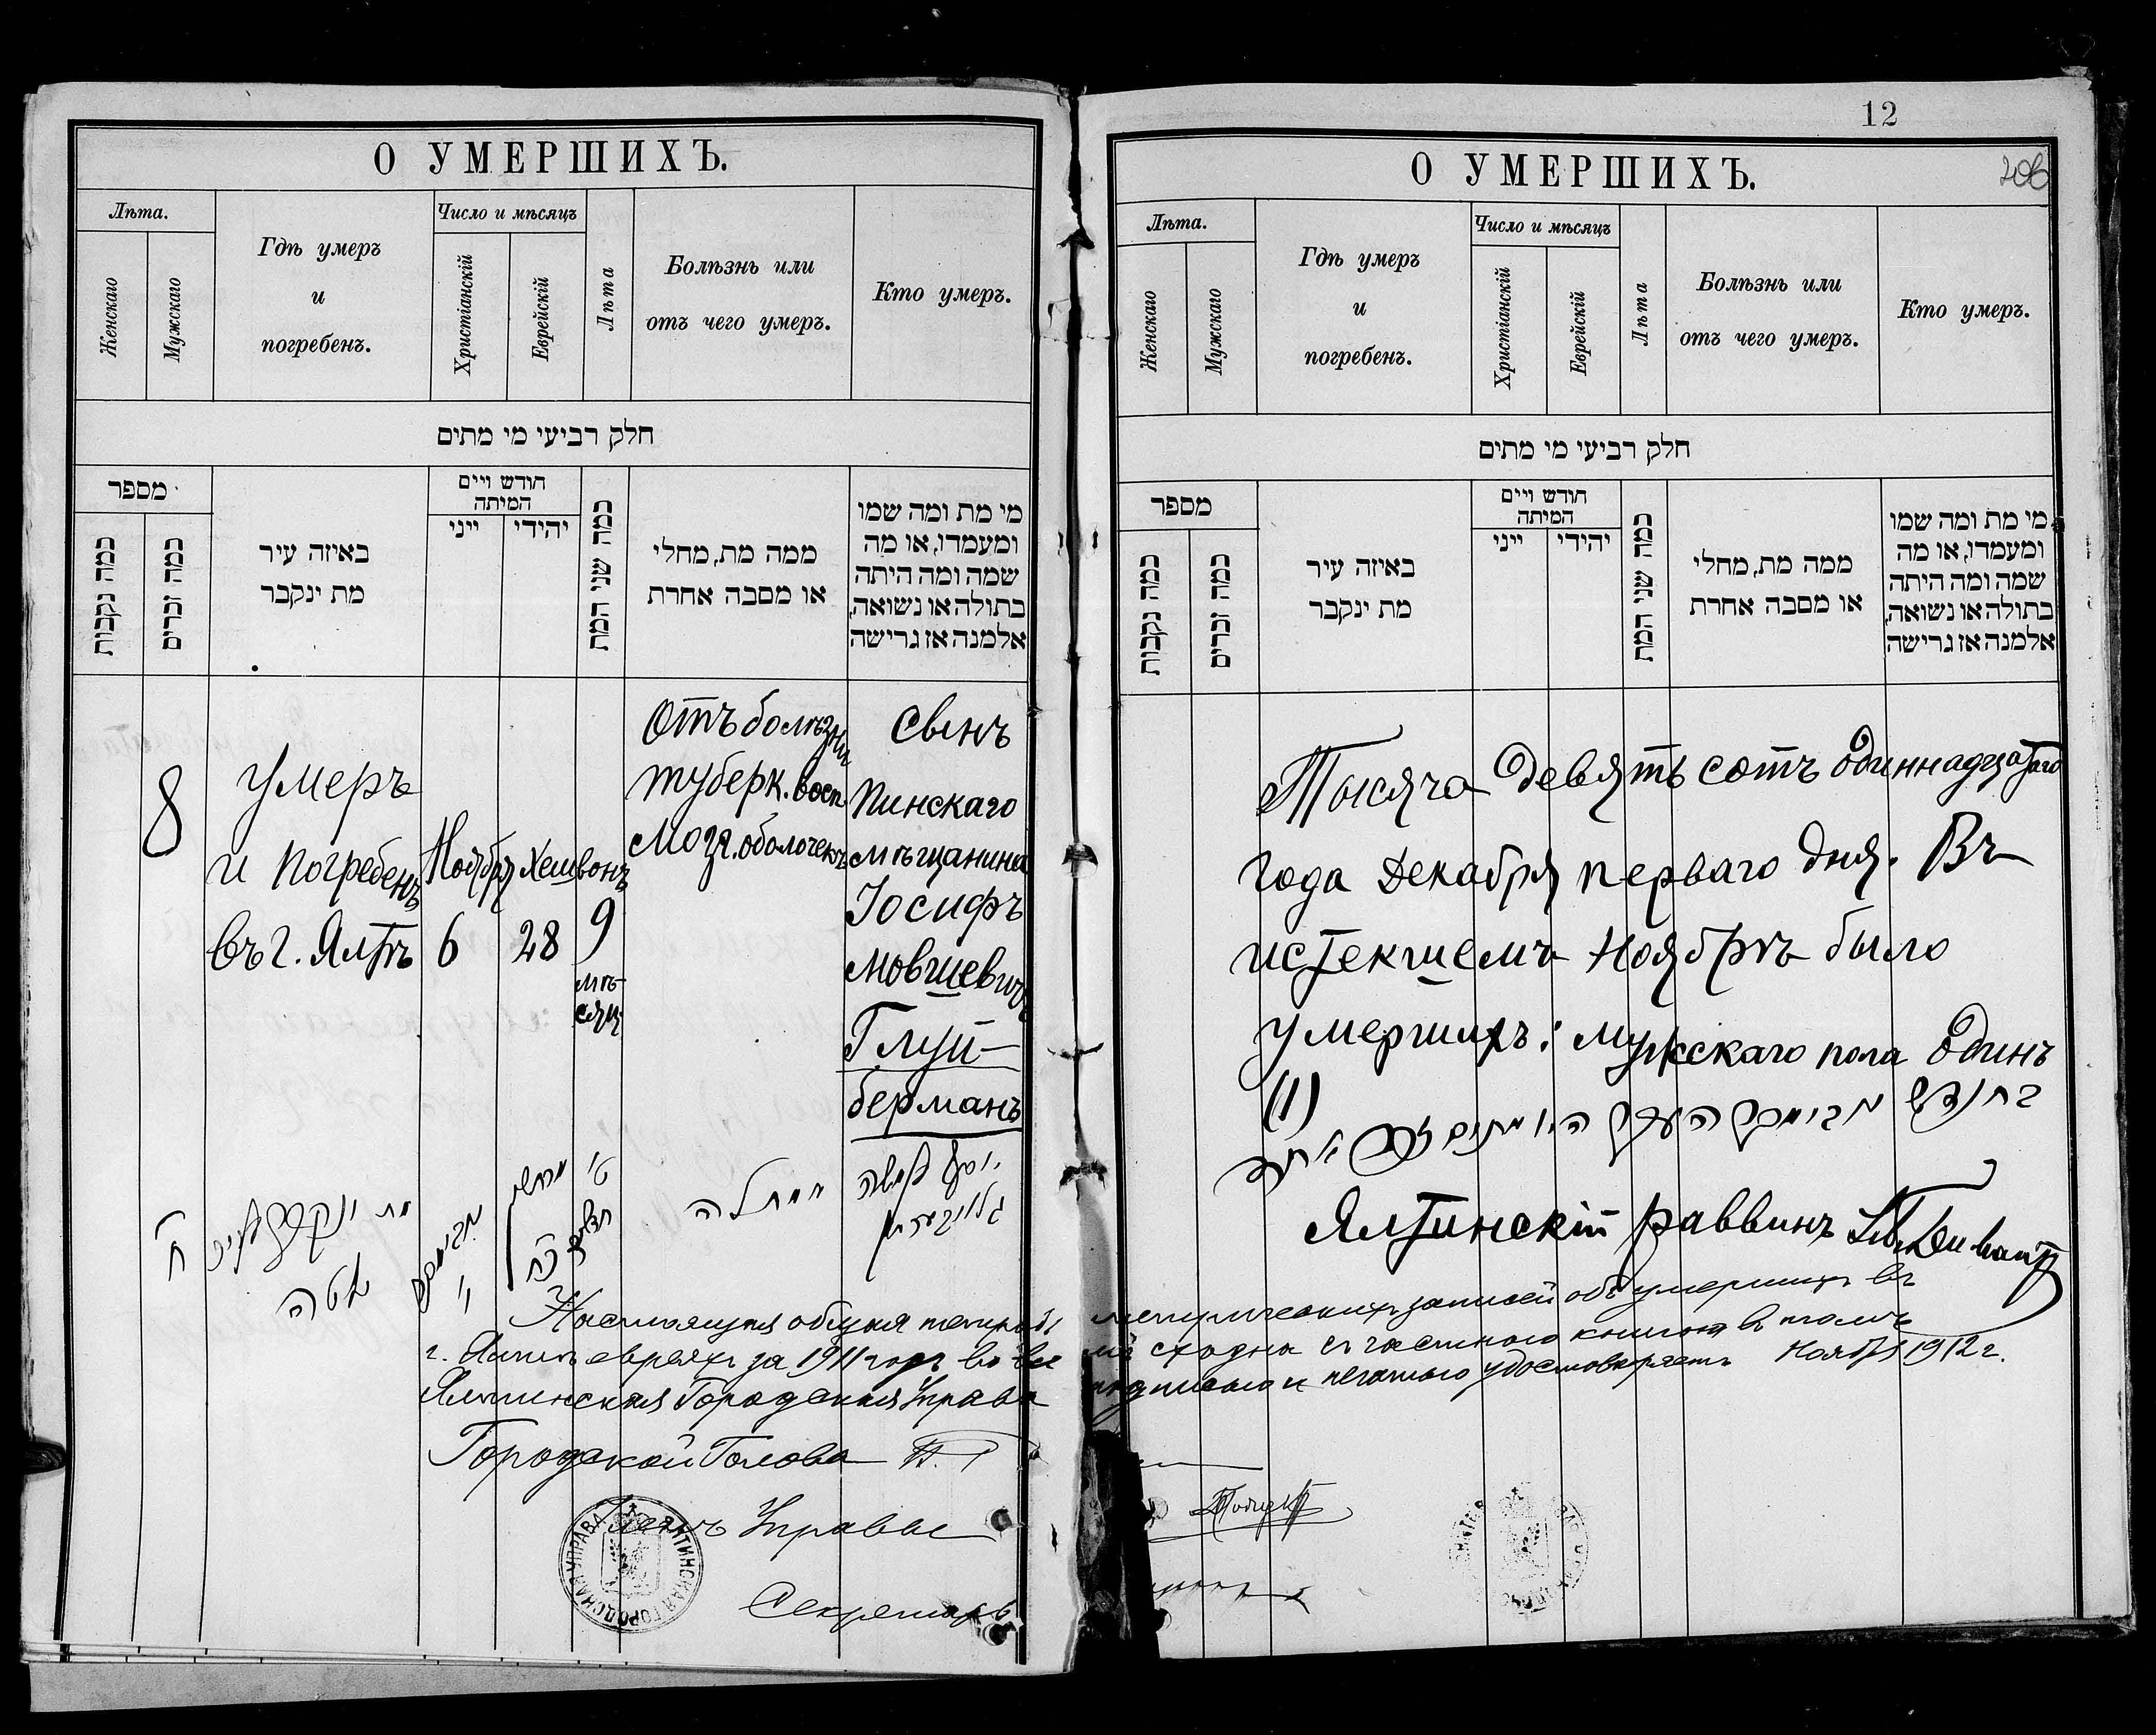 О УМЕРШИХЪ.
Лѣта.
Женскаго
Мужскаго
Гдѣ умеръ
и
погребенъ.
Число и мѣсяцъ
Христіанскій
Еврейскій
Лѣта
Болѣзнь или
отъ чего умеръ.
Кто умеръ.
חלק רביעי מי מתים
מספר
כמה נקבות
כמה זכרים
באיזה עיר
מת ינקבר
חודש ויים
המיתה
ייני
יהידי
כמה שני המת
ממה מת, מחלי
או מסבה אחרת
מי מת ומה שמו
ומעמדו, או מה
שמה ומה היתה
בתולה או נשואה,
אלמנה אז גרישה
8
умеръ
и погребенъ
въ г. Ялтѣ
Ноября
6
Хешвонъ
28
9
мѣ-
сяц
Отъ болѣзни
туберк. восп
мозг. оболочекъ
Сынъ
Пинскаго
мѣщанина
Іосифъ
Мовшевичъ
Глуй-
берманъ
ח
מת ונקבר
יאלטה
Настоящая
г. Ялтѣ евреяхъ за 1911 годъ во все
Ялтинская Городская Управа
Городской Голова
Членъ Управы
Секретарь
ЯЛТИНСКАЯ ГОРОДСКАЯ УПРАВА
12
О УМЕРШИХЪ.
Лѣта.
Женскаго
Мужскаго
Гдѣ умеръ
и
погребенъ.
Число и мѣсяцъ
Христіанскій
Еврейскій
Лѣта
Болѣзнь или
отъ чего умеръ.
Кто умеръ.
חלק רביעי מי מתים
מספר
כמה נקבות
כמה זכרים
באיזה עיר
מת ינקבר
חודש ויים
המיתה
ייני
יהידי
כמה שני המת
ממה מת, מחלי
או מסבה אחרת
מי מת ומה שמו
ומעמדו, או מה
שמה ומה היתה
בתולה או נשואה,
אלמנה אז גרישה
Тысяча девятьсотъ одиннадцатаго
года Декабря перваго дня. Въ
истекшемъ Ноябрѣ было
умершихъ: мужскаго пола одинъ
(1)
Ялтинскій раввинъ
метрическихъ записей объ умершихъ въ
сходна съ частною книгою въ томъ
подписью и печатью удостовѣряетъ Ноября 1912 г.